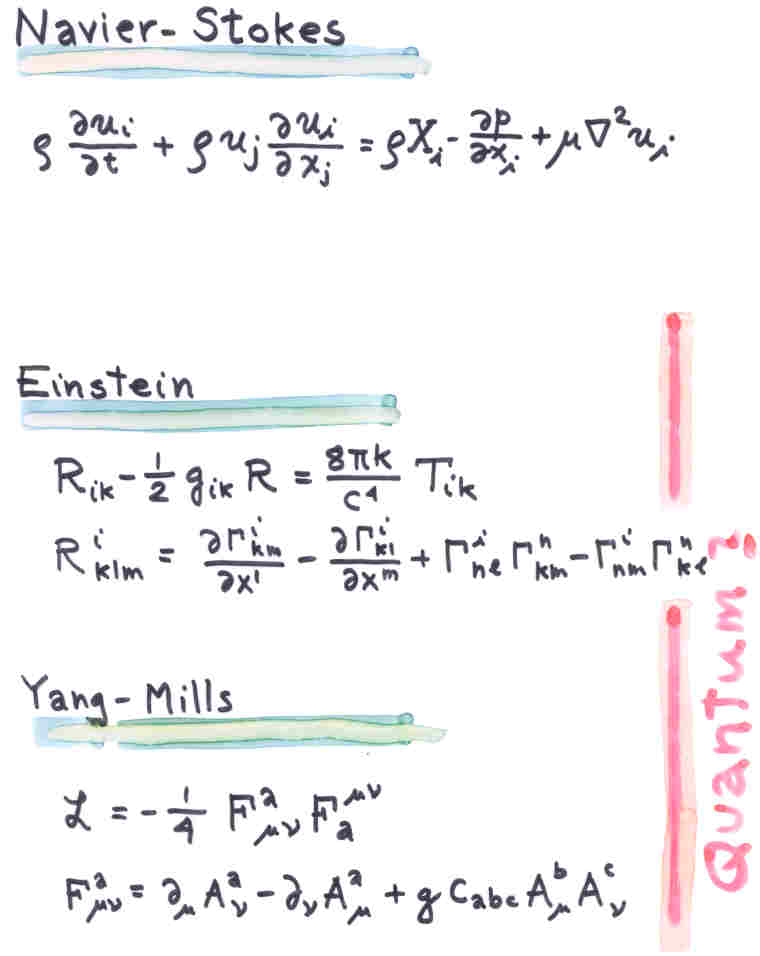 Navier-Stokes
ρ ∂uᵢ/∂t + ρ uⱼ ∂uᵢ/∂xⱼ = ρXᵢ - ∂p/∂xᵢ + μ∇²uᵢ
Einstein
R_ik - 1/2 g_ik R = 8πk/c⁴ T_ik
R^i_klm = ∂Γ^i_km/∂x^l - ∂Γ^i_kl/∂x^m + Γ^i_nl Γ^n_km - Γ^i_nm Γ^n_kl
Yang-Mills
ℒ = -1/4 F^a_μν F_a^μν
F^a_μν = ∂_μ A^a_ν - ∂_ν A^a_μ + g C_abc A^b_μ A^c_ν
Quantum?